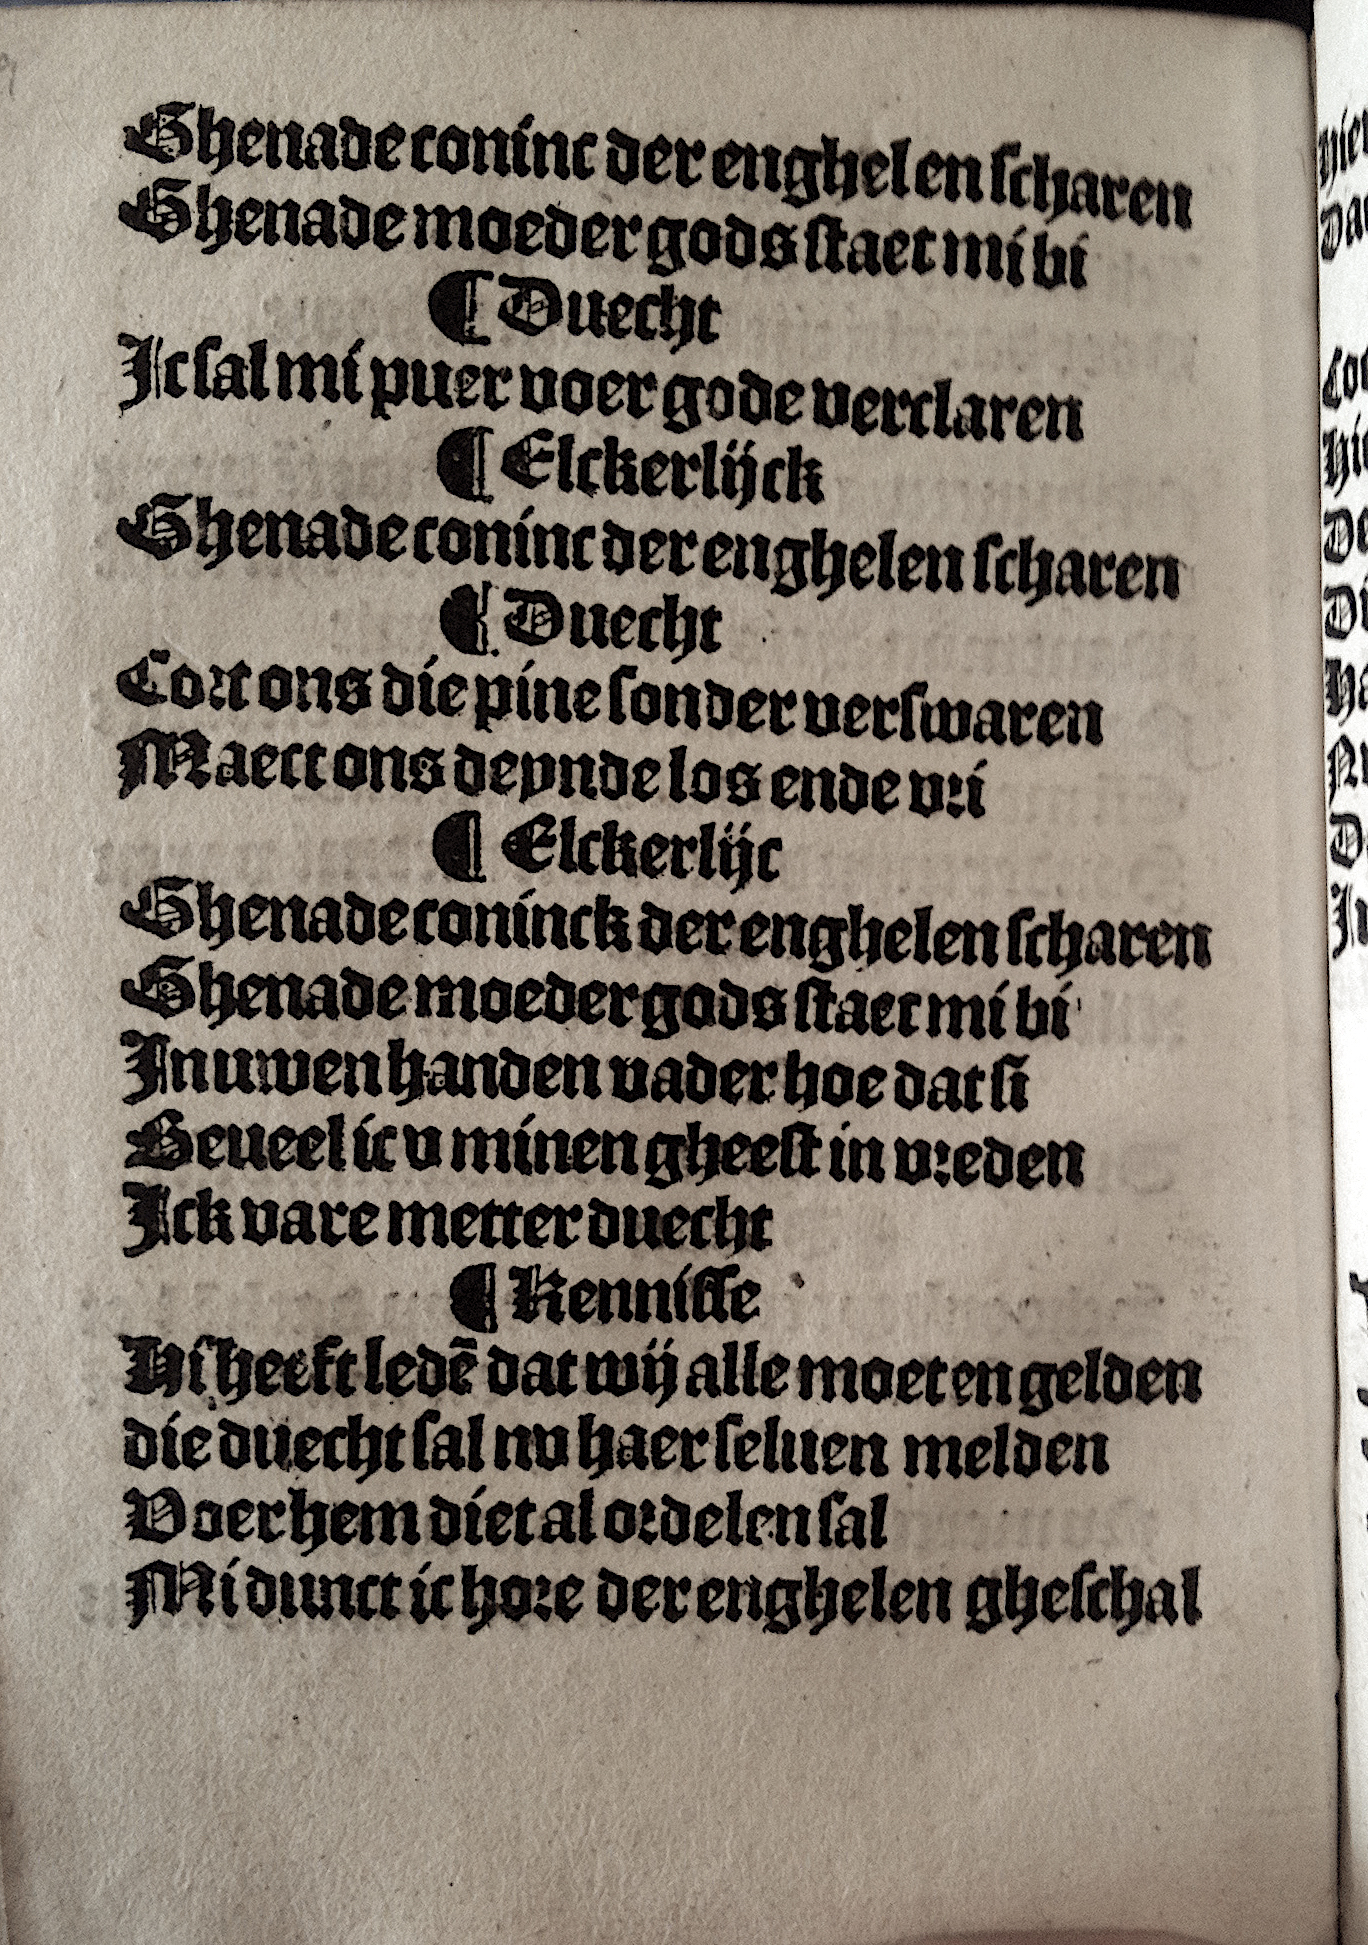 Ghenade coninc der enghelen scharen
Ghenade moeder gods staet mi bi
¶ Duecht
Ic sal mi puer voer gode verclaren
¶ Elckerlijck
Ghenade coninc der enghelen scharen
¶ Duecht
Cort ons die pine sonder verswaren
Maect ons deynde los ende vri
¶ Elckerlijc
Ghenade coninck der enghelen scharen
Ghenade moeder gods staet mi bi
In uwen handen vader hoe dat si
Beueel ic v minen gheest in vreden
Ick vare metter duecht
¶ Kennisse
Hi heeft ledē dat wij alle moeten gelden
die duecht sal nv haer seluen melden
Voer hem diet al ordelen sal
Mi dunct ic hore der enghelen gheschal